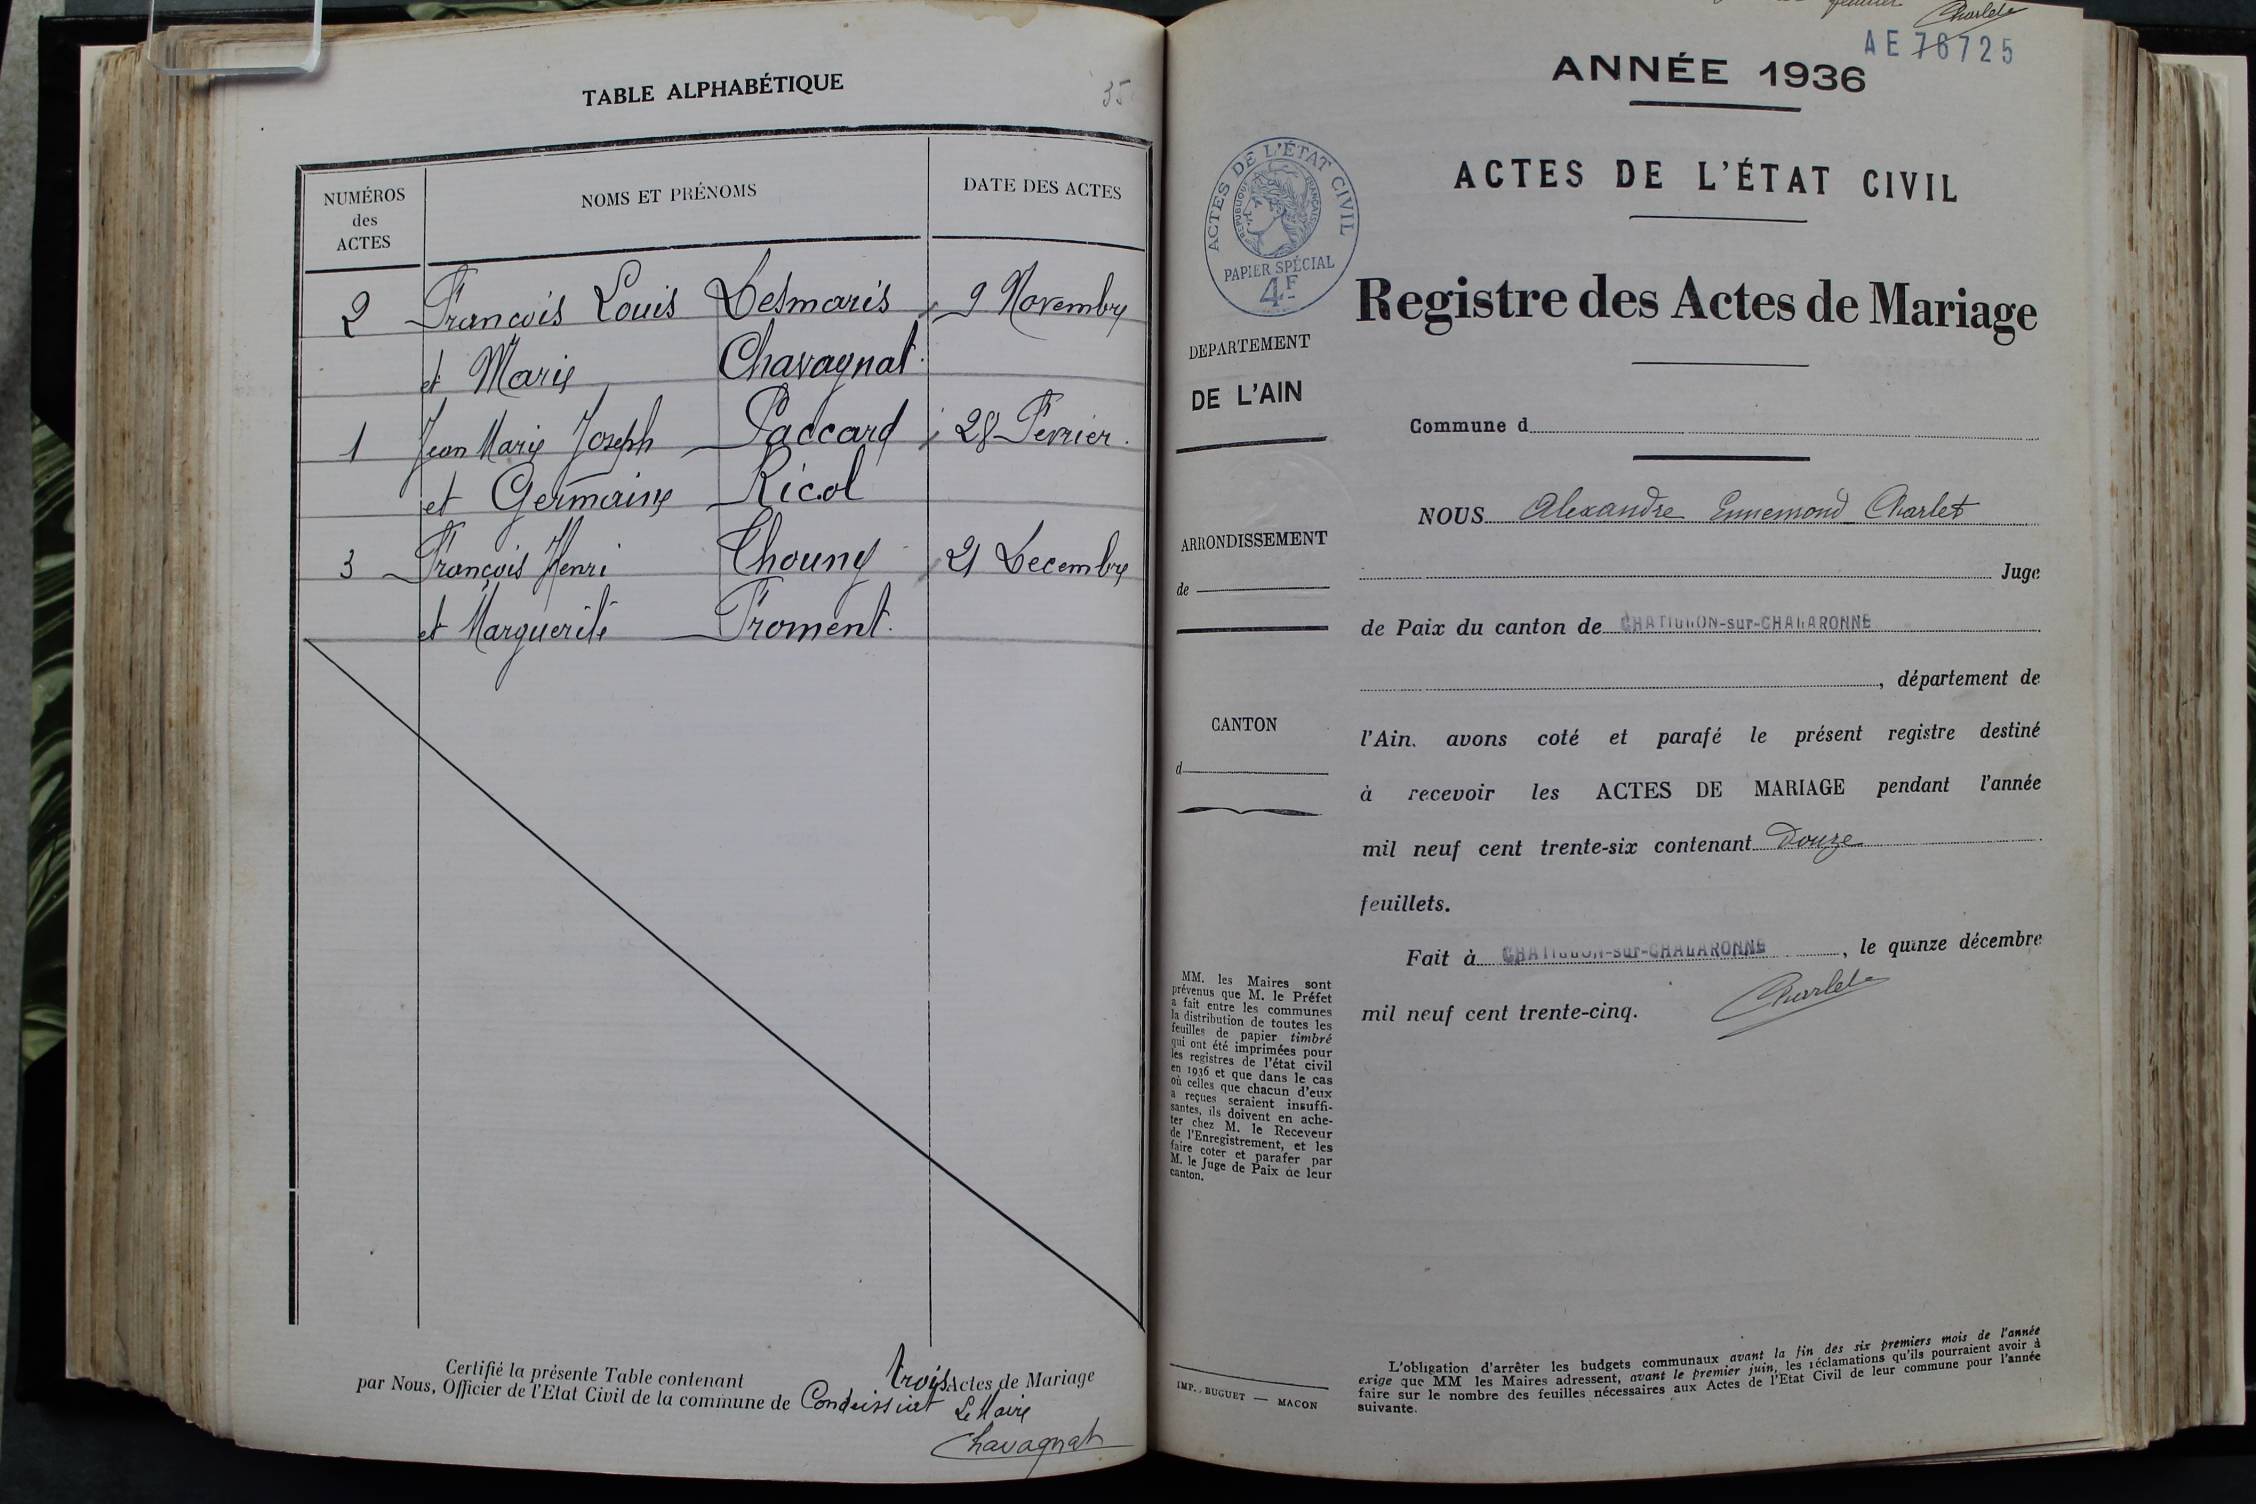 TABLE ALPHABÉTIQUE
35
NUMÉROS
des
ACTES
NOMS ET PRÉNOMS
DATE DES ACTES
2 François Louis Desmaris 9 Novembre
et Marie Chavagnat
1 Jean Marie Joseph Paccard 28 Février
et Germaine Ricol
3 François Henri Thouny 21 Decembre
et Marguerite Froment
Certifié la présente Table contenant trois Actes de Mariage
par Nous, Officier de l'Etat Civil de la commune de Condeissiat Le Maire
Chavagnat
Charlet
AE 76725
ANNÉE 1936
ACTES DE L'ÉTAT CIVIL
ACTES DE L'ÉTAT CIVIL
RÉPUBLIQUE FRANÇAISE
PAPIER SPÉCIAL
4F
Registre des Actes de Mariage
DEPARTEMENT
DE L'AIN
Commune d
NOUS Alexandre Ennemond Charlet
ARRONDISSEMENT
de
Juge
de Paix du canton de CHATILLON-sur-CHALARONNE
, département de
CANTON
d
l'Ain. avons coté et parafé le présent registre destiné
à recevoir les ACTES DE MARIAGE pendant l'année
mil neuf cent trente-six contenant Douze
feuillets.
Fait à CHATILLON-sur-CHALARONNE, le quinze décembre
mil neuf cent trente-cinq.
Charlet
MM. les Maires sont
prévenus que M. le Préfet
a fait entre les communes
la distribution de toutes les
feuilles de papier timbré
qui ont été imprimées pour
les registres de l'état civil
en 1936 et que dans le cas
où celles que chacun d'eux
a reçues seraient insuffi-
santes, ils doivent en ache-
ter chez M. le Receveur
de l'Enregistrement, et les
faire coter et parafer par
M. le Juge de Paix de leur
canton.
IMP. BUGUET — MACON
L'obligation d'arrêter les budgets communaux avant la fin des six premiers mois de l'année
exige que MM les Maires adressent, avant le premier juin, les réclamations qu'ils pourraient avoir à
faire sur le nombre des feuilles nécessaires aux Actes de l'Etat Civil de leur commune pour l'année
suivante.